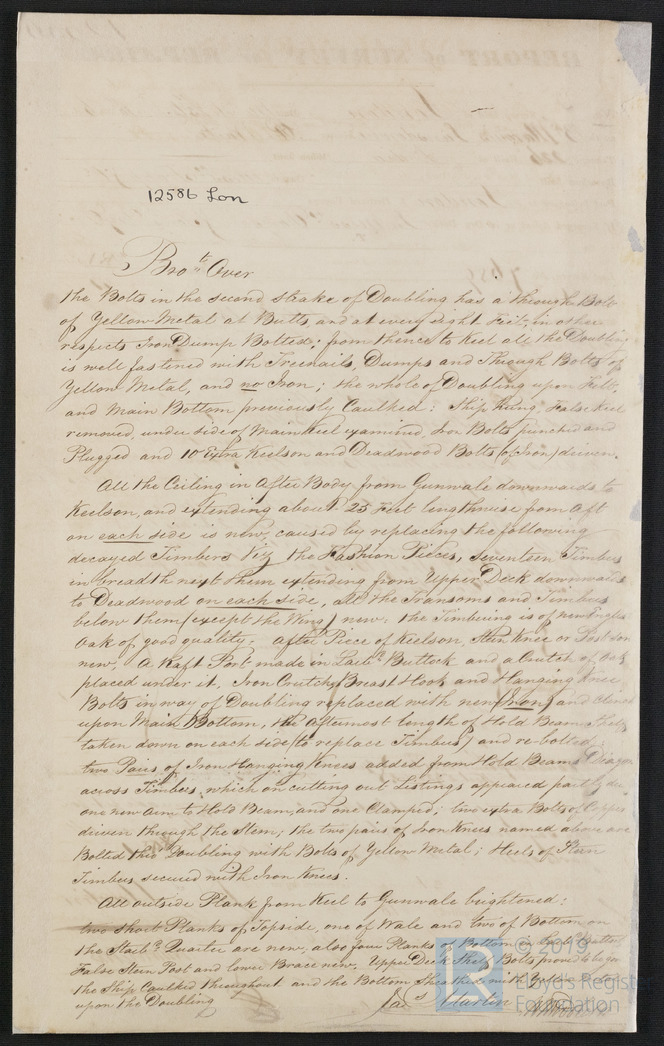 12586 Lon
Bro.t Over
the Bolts in the second strake of Doubling has a through Bolt
of Yellow Metal at Butts and at every eight Feet; in other
respects Iron Dump Bolted; from thence to Keel all the Doubling
is well fastened with Treenails, Dumps and Through Bolts of
Yellow Metal, and no Iron; the whole of Doubling upon Felt,
and Main Bottom previously Caulked: Ship hung, False Keel
removed, under side of Main Keel examined Iron Bolts punched and
Plugged and 10 Extra Keelson and Deadwood Bolts (of Iron) driven.
All the Ceiling in After Body, from Gunwale downwards to
Keelson, and extending about 25 Feet lengthwise from aft
on each side is new, caused by replacing the following
decayed Timbers Viz the Fashion Pieces, Seventeen Timbers
in breadth next them extending from Upper Deck downwards
to Deadwood on each side, all the Transoms and Timbers
below them (except the Wing) new: the Timbering is of new English
Oak of good quality. After Piece of Keelson, Stern Knee or Post
new, A Raft Port made in Larb.d Buttock and a Crutch of Oak
placed under it, Iron Crutch, Breast Hook and Hanging Knee
Bolts in way of Doubling replaced with new (Iron) and clinched
upon Main Bottom, the aftermost length of Hold Beam Shelf
taken down on each side (to replace Timbers) and re-bolted
two Pairs of Iron Hanging Knees added from Hold Beams
across Timbers, which on cutting out Listings appeared partly
one new arm to Hold Beam, and one Clamped; two extra Bolts of Copper
driven through the Stem; the two pairs of Iron Knees named above are
Bolted thro Doubling with Bolts of Yellow Metal; Heels of Stern
Timbers secured with Iron Knees.
All outside Plank from Keel to Gunwale brightened:
two short Planks of Topside, one of Wale and two of Bottom on
the Starb.d Quarter are new, also four Planks of Bottom
False Stern Post and lower Brace new. Upper Deck Shelf Bolts proved to be good
the Ship Caulked throughout and the Bottom Sheathed with Yellow
upon the Doubling
Ja.s Martin
© 2019
Lloyd's Register
Foundation